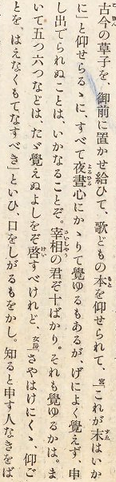 古今の草子を、御前に置かせ給ひて、歌どもの本を仰せられて、「これが末はいか
に」と仰せらるゝに、すべて夜晝心にかゝりて覺ゆるもあるが、げによく覺えず、申
し出でられぬことは、いかなることぞ。宰相の君ぞ十ばかり。それも覺ゆるかは。ま
いて五つ六つなどは、たゞ覺えぬよしをぞ啓すべけれど、「さやはけにくゝ、仰ご
とを、はえなくもてなすべき」といひ、口をしがるもをかし。知ると申す人なきをば